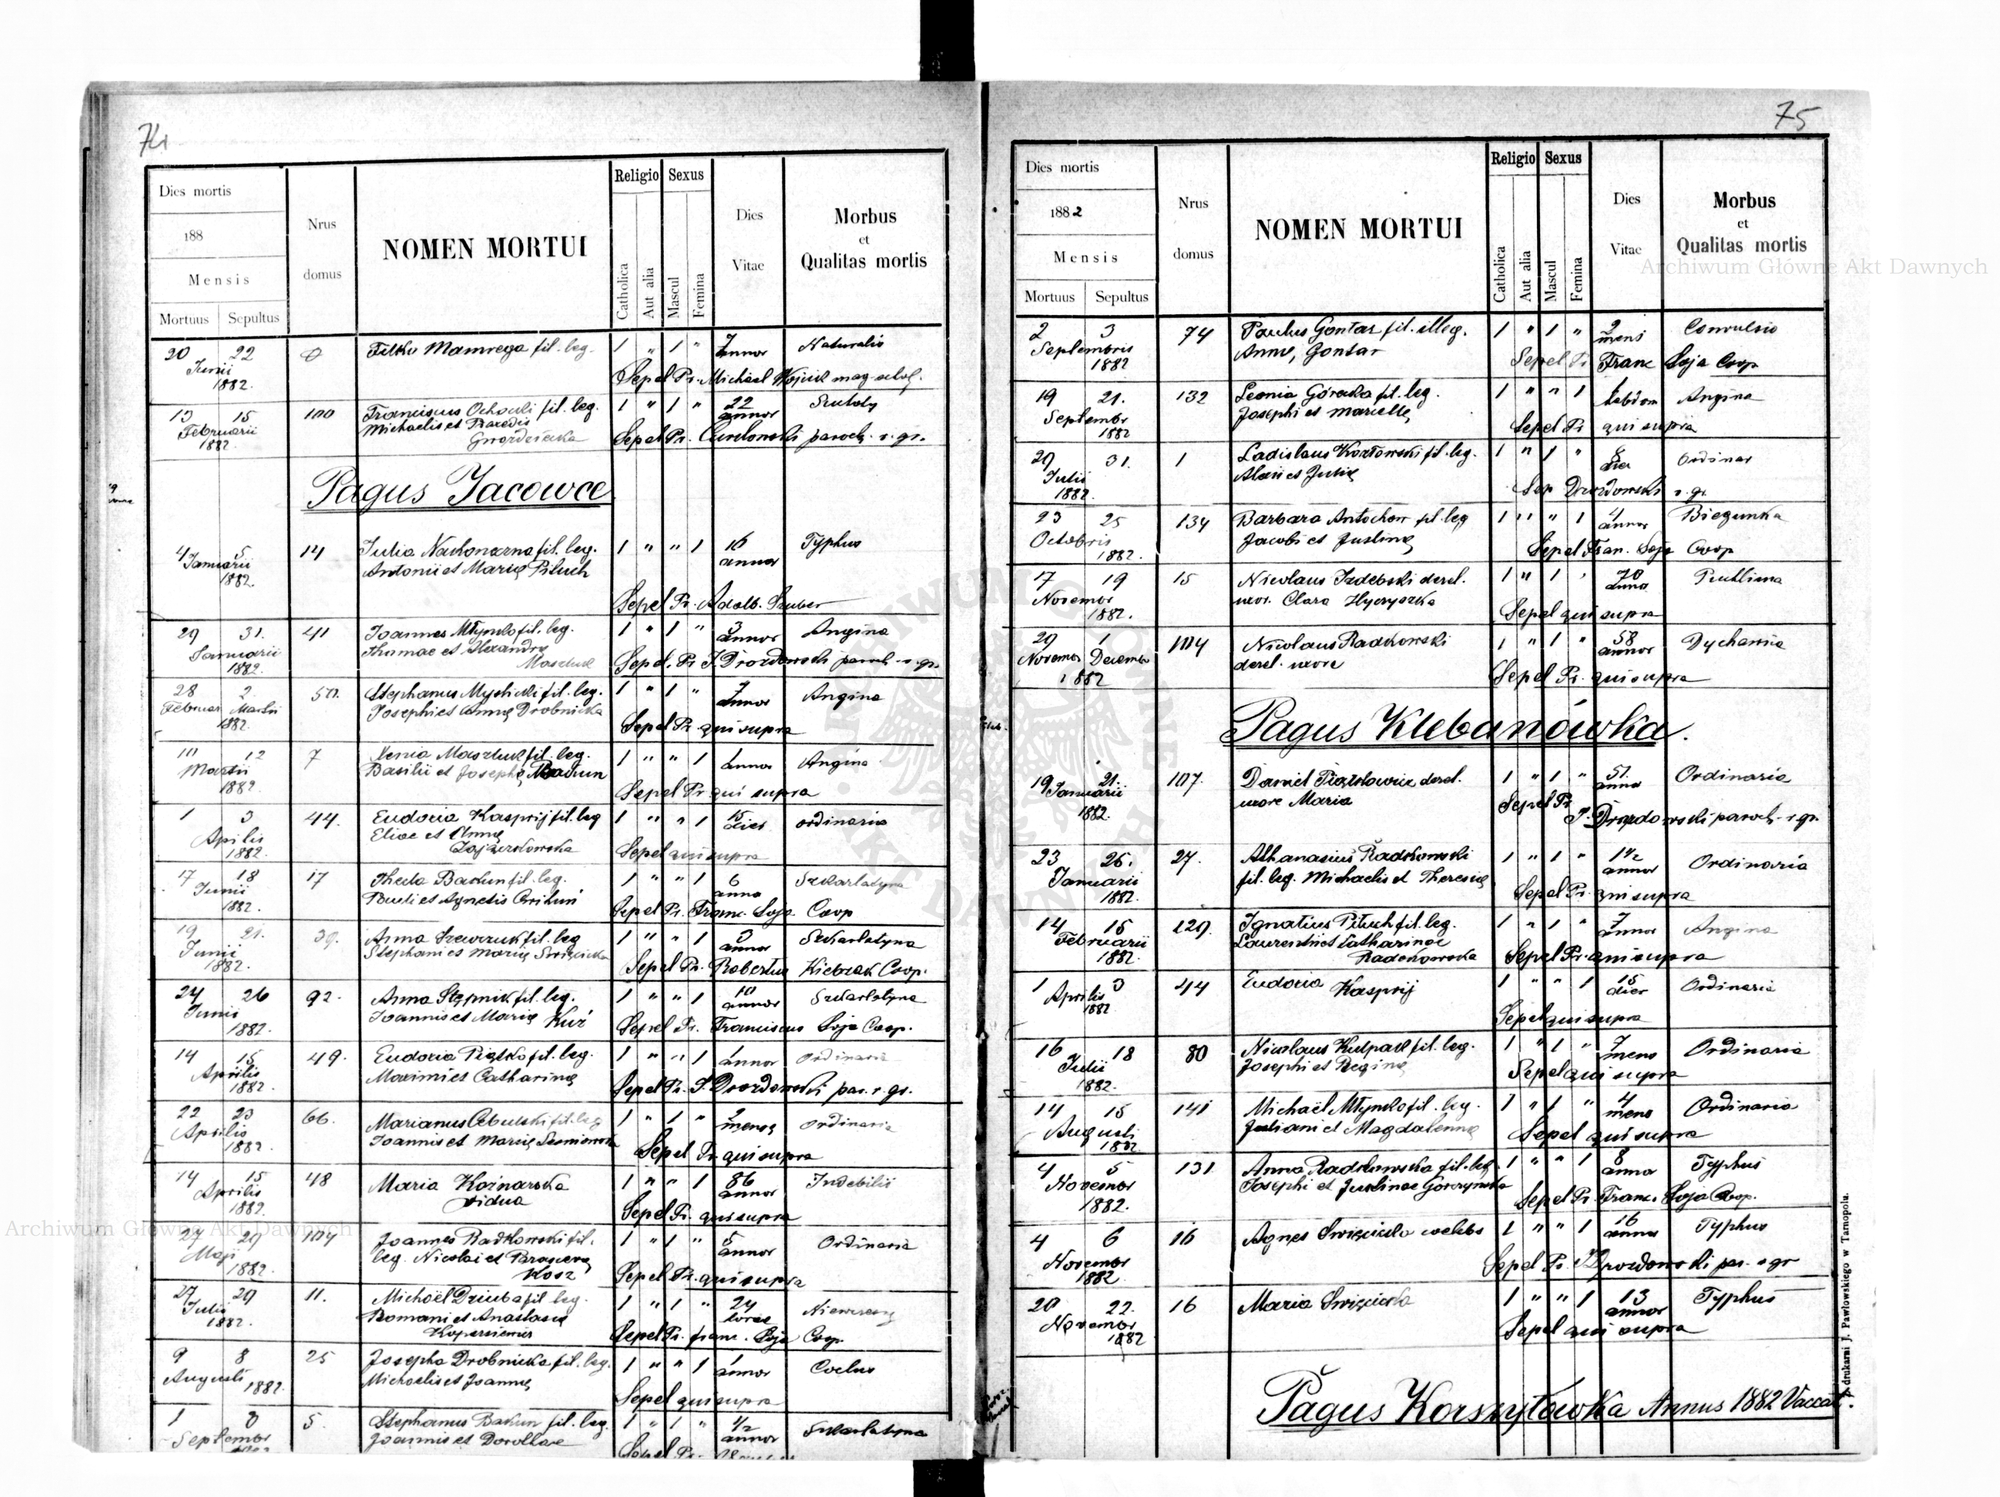 74
Dies mortis
188
Mensis
Mortuus Sepultus
Nrus domus
NOMEN MORTUI
Religio
Catholica
Aut alia
Sexus
Mascul
Femina
Dies Vitae
Morbus et Qualitas mortis
20 22 0 Filko Mamrega fil. leg. 1 " 1 " 7 Naturalis
Junii annor
1882. Sepel Pr. Michael Wójcik
13 15 100 Franciscus fil. leg. 1 " 1 " 22
Februarii Michaelis et Praxedis annor
1882. Sepel Pr. paroch. r. gr.
Pagus Jacowce
4 5 14 Julia fil. leg. 1 " " 1 16 Typhus
Januarii Antonii et Marię Pituch annor
1882. Sepel Pr. Adalb. Szuber
29 31. 41 Joannes Młynko fil. leg. 1 " 1 " 3 Angina
Januarii Thomae et Alexandrę annor
1882. Maszluk Sepel. Pr. J. Drozdowski paroch. r. gr.
28 2. 50. Stephanus fil. leg. 1 " 1 " Angina
Februar Martii Josephi et Annę Drobnicka annor
1882. Sepel Pr. qui supra
10 12 7 Xenia Maszluk fil. leg. 1 " " 1 1 Angina
Martii Basilii et Josephę annor
1882. Sepel Pr. qui supra
1 3 44. Eudoxia Kasprij fil. leg 1 " " 1 15 ordinaria
Aprilis Eliae et Annę dies
1882. Sepel qui supra
17 18 17 Thecla Bakun fil. leg. 1 " " 1 6 Szkarlatyna
Junii Pauli et Agnetis anno
1882. Sepel Pr. Franc. Soja Coop
19 21. 39. Anna Szewczuk fil. leg 1 " " 1 3 Szkarlatyna
Junii Stephani et Marię Swięcicka annor
1882. Sepel Pr. Robertus Coop.
24 26 92. Anna Stępnik fil. leg. 1 " " 1 10 Szkarlatyna
Junii Joannis et Marię Kuź annor
1882. Sepel Pr. Franciscus Soja Coop.
14 15 49. Eudoxia Piątko fil. leg. 1 " " 1 1 Ordinaria
Aprilis Maximi et Catharinę annor
1882. Sepel Pr. J. Drozdowski par. r. gr.
22 23 66. Marianus Cebulski fil. leg 1 " 1 " 2 Ordinaria
Aprilis Joannis et Marię mens
1882. Sepel Pr. qui supra
14 15 48 Maria Koinarska 1 " " 1 86
Aprilis vidua annor
1882. Sepel Pr. qui supra
27 29 104 Joannes Radkowski fil. 1 " 1 " 5 Ordinaria
Maji leg. Nicolai et Parascevę annor
1882. Kosz Sepel Pr. qui supra
27 29 11. Michaël Dziuba fil. leg. 1 " 1 " 24
Julii Romani et Anastasię horae
1882. Sepel Pr. franc. Soja Coop.
9 8 25 Josepha Drobnicka fil. leg. 1 " " 1 1
Augusti Michaelis et Joannę annor
1882. Sepel qui supra
1 3 5. Stephanus Bakun fil. leg. 1 " 1 " 1/2 Szkarlatyna
Septembr Joannis et annor
Sepel Pr.
75
Dies mortis
1882
Mensis
Mortuus Sepultus
Nrus domus
NOMEN MORTUI
Religio
Catholica
Aut alia
Sexus
Mascul
Femina
Dies Vitae
Morbus et Qualitas mortis
2 3 74 Paulus Gontar fil. illeg. 1 " 1 " 2 Convulsio
Septembris Annę, Gontar mens
1882 Sepel Pr. Franc Soja Coop
19 21. 132 Leonia Górecka fil. leg. 1 " " 1 hebdom Angina
Septembr Josephi et Marcellę
1882 Sepel Pr. qui supra
29 31. 1 Ladislaus Kozłowski fil. leg. 1 " 1 " 8 Ordinar
Julii et Julię dier
1882. Sep Drozdowski r. gr.
23 25 134 Barbara Antochow fil. leg 1 " " 1 4 Biegunka
Octobris Jacobi et Justinę annor
1882. Sepel Fran. Soja Coop
17 19 15 Nicolaus Izdebski derel. 1 " 1 " 70
Novembr uxor. Clara anno
1882. Sepel qui supra
29 1 104 Nicolaus Radkowski 1 " 1 " 58
Novembr Decembr derel. uxore annor
1882 Sepel Pr. qui supra
Pagus Klebanówka.
19 21. 107. Daniel derel. 1 " 1 " 51. Ordinaria
Januarii uxore Maria anno
1882. Sepel Pr. J. Drozdowski paroch. r. gr.
23 25. 27. Athanasius Radkowski 1 " 1 " Ordinaria
Januarii fil. leg. Michaelis et Theresię annor
1882. Sepel Pr. qui supra
14 15 129. Ignatius Pituch fil. leg. 1 " 1 " 7 Angina
Februarii Laurentii et Catharinae annor
1882. Radkowska Sepel Pr. qui supra
1 3 44 Eudoxia Kasprij 1 " " 1 15 Ordinaria
Aprilis dier
1882 Sepel qui supra
16 18 80 Nicolaus Kulpak fil. leg. 1 " 1 " 7 Ordinaria
Julii Josephi et Reginę mens
1882. Sepel qui supra
14 15 141 Michaël Młynko fil. leg. 1 " 1 " 4 Ordinaria
Augusti Juliani et Magdalenę mens
1882. Sepel qui supra
4 5 131 Anna Radkowska fil. leg 1 " " 1 8 Typhus
Novembr Josephi et Paulinae Gorczyńska anno
1882. Sepel Pr. Franc. Soja Coop.
4 6 16 Agnes Swięcicka coelebs 1 " " 1 16 Typhus
Novembr annor
1882. Sepel Pr. J Drozdowski par. r gr
20 22. 16 Maria Swięcicka 1 " " 1 13 Typhus
Novembr annor
1882 Sepel qui supra
Pagus Korszyłówka Annus 1882 Vaccat.
Z drukarni J. Pawłowskiego w Tarnopolu.
Archiwum Główne Akt Dawnych
Archiwum Główne Akt Dawnych
ARCHIWUM GŁÓWNE AKT DAWNYCH